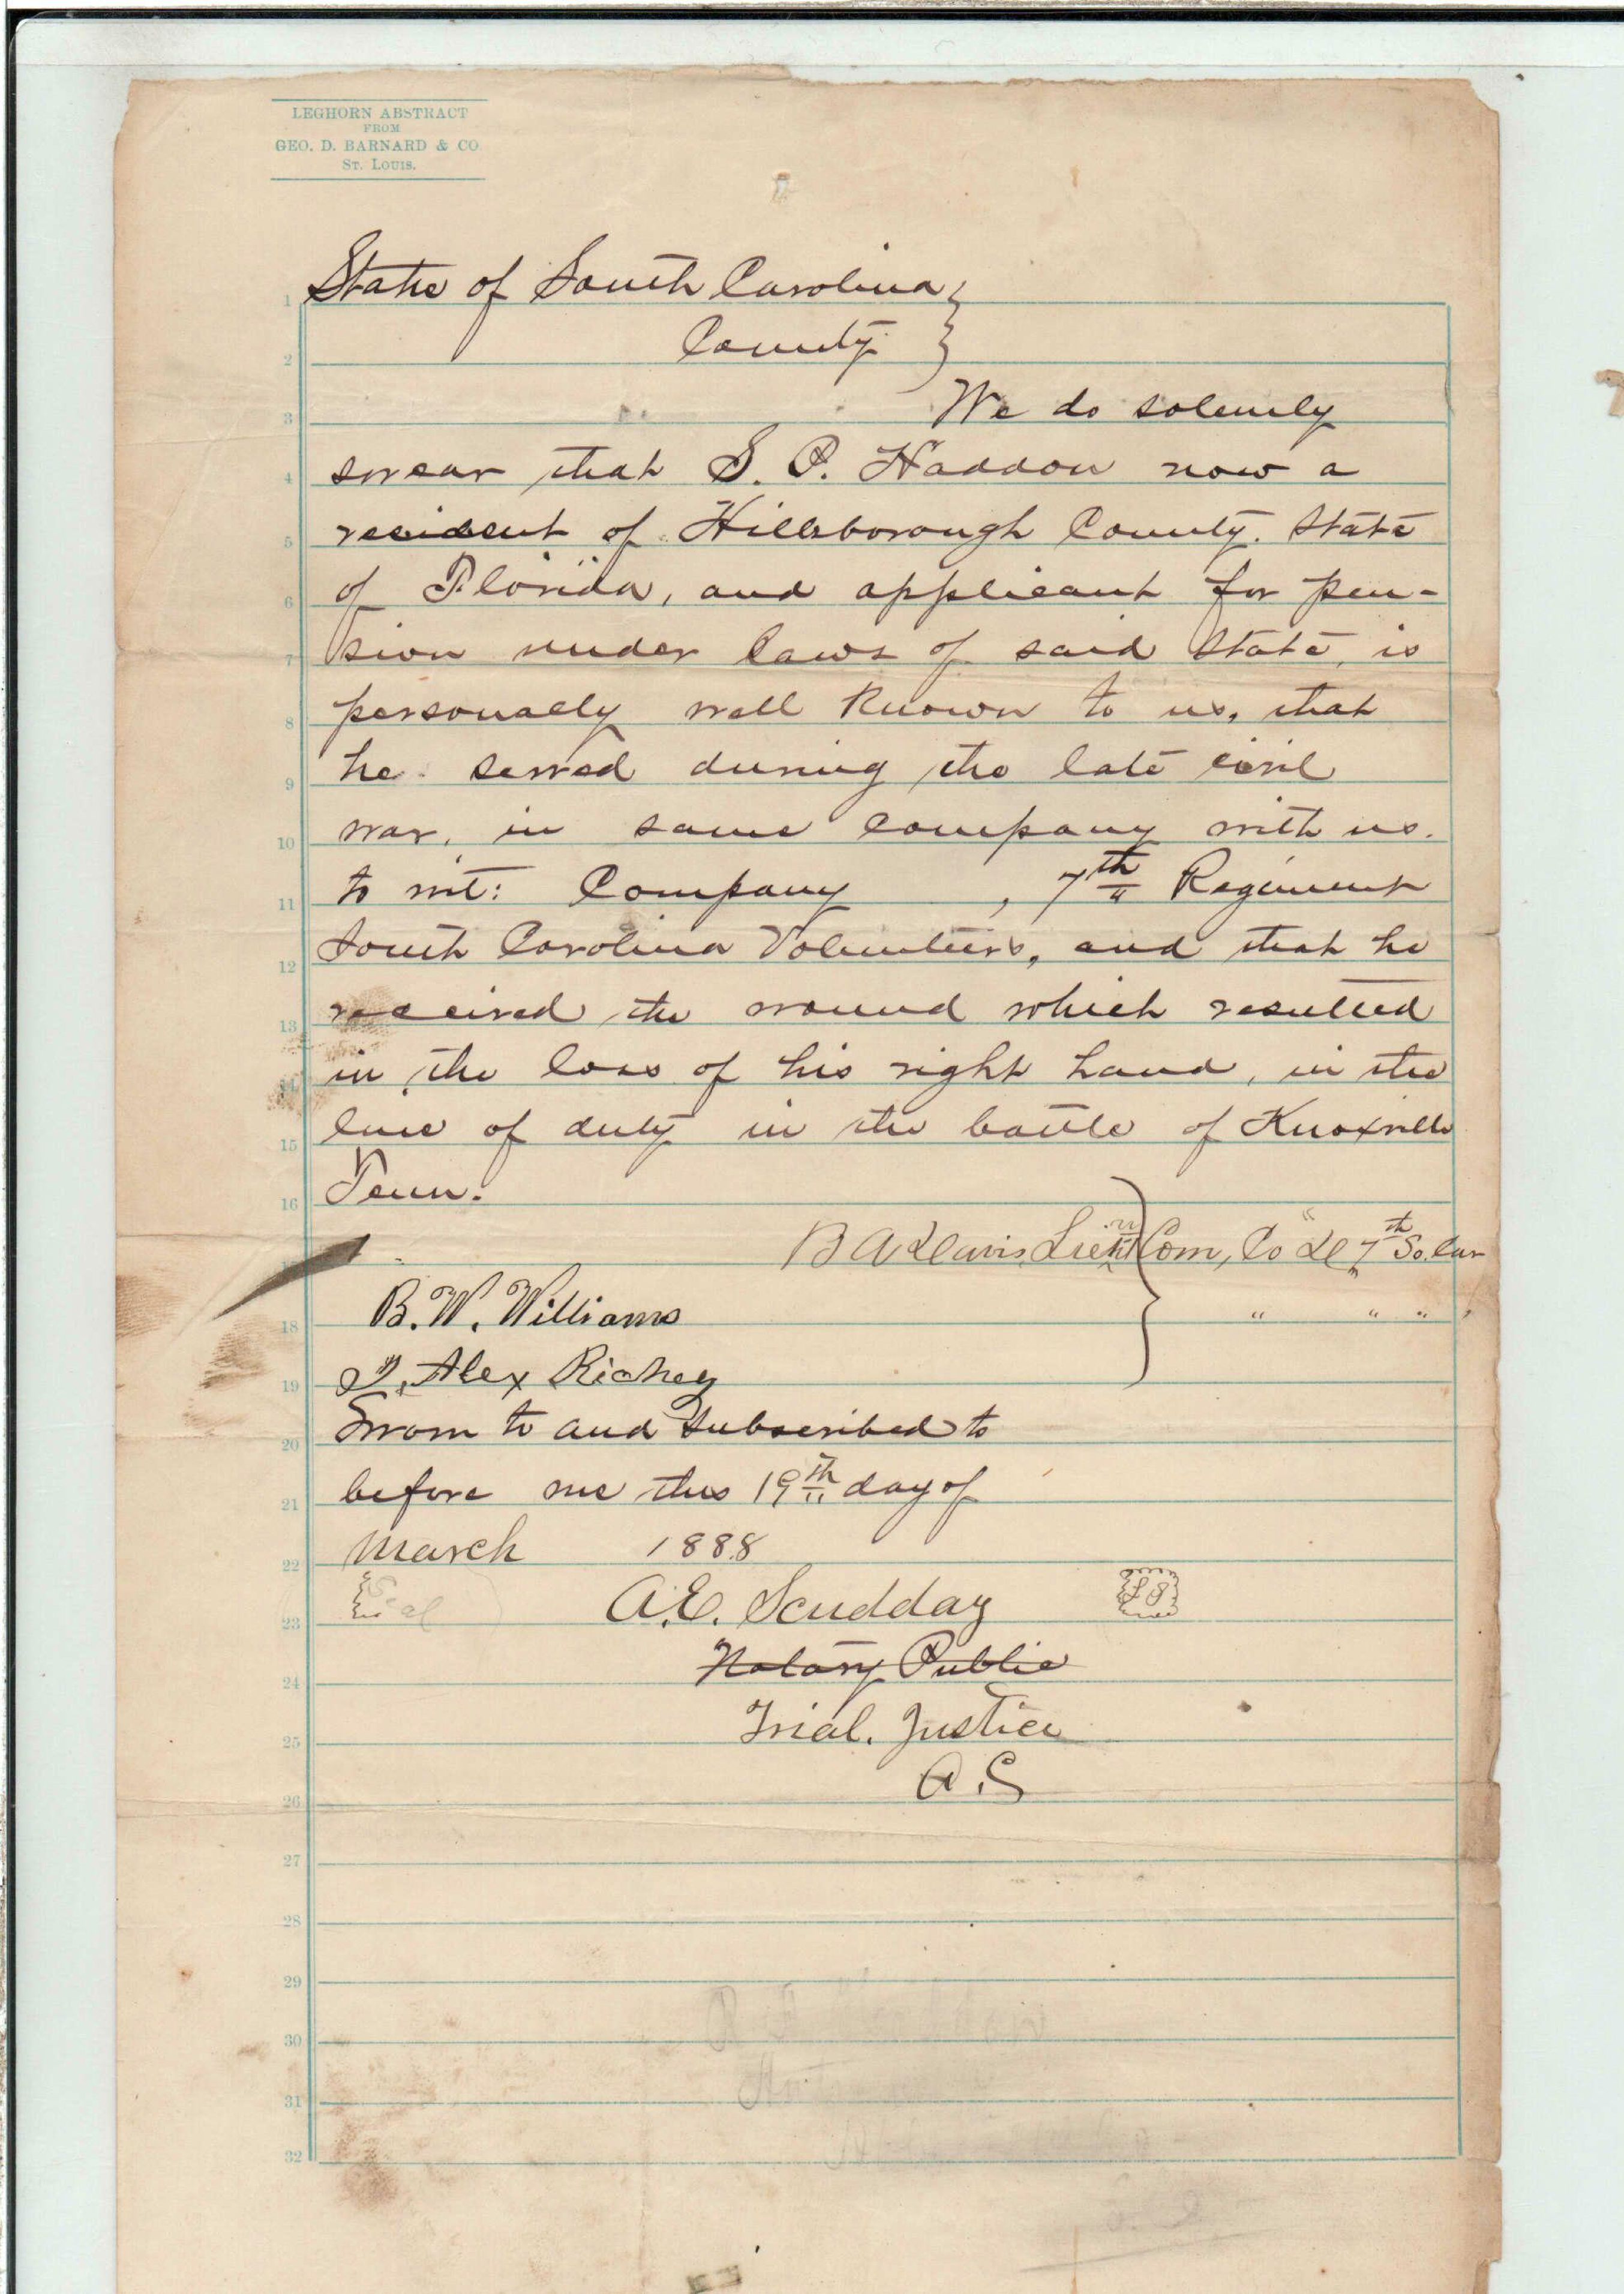 LEGHORN ABSTRACT
FROM
GEO. D. BARNARD & CO
ST. LOUIS.
State of South Carolina }
County }
We do solemly
swear that S. P. Haddon now a
resident of Hillsborough County. State
of Florida, and applicant for pen-
sion under laws of said State, is
personally well known to us, that
he served during the late civil
war, in same company with us.
to wit: Company , 7th Regiment
South Carolina Volunteers, and that he
received the wound which resulted
in the loss of his right hand, in the
line of duty in the battle of Knoxville
Tenn.
B A Davis, Lieut Com, Co "D" 7th So. Car
B. W. Williams " " "
Alex Richey
Sworn to and subscribed to
before me this 19th day of
March 1888
Seal A. E. Scudday L S
Notary Public
Trial. Justice
A. C
1
2
3
4
5
6
7
8
9
10
11
12
13
14
15
16
18
19
20
21
22
23
24
25
26
27
28
29
30
31
32